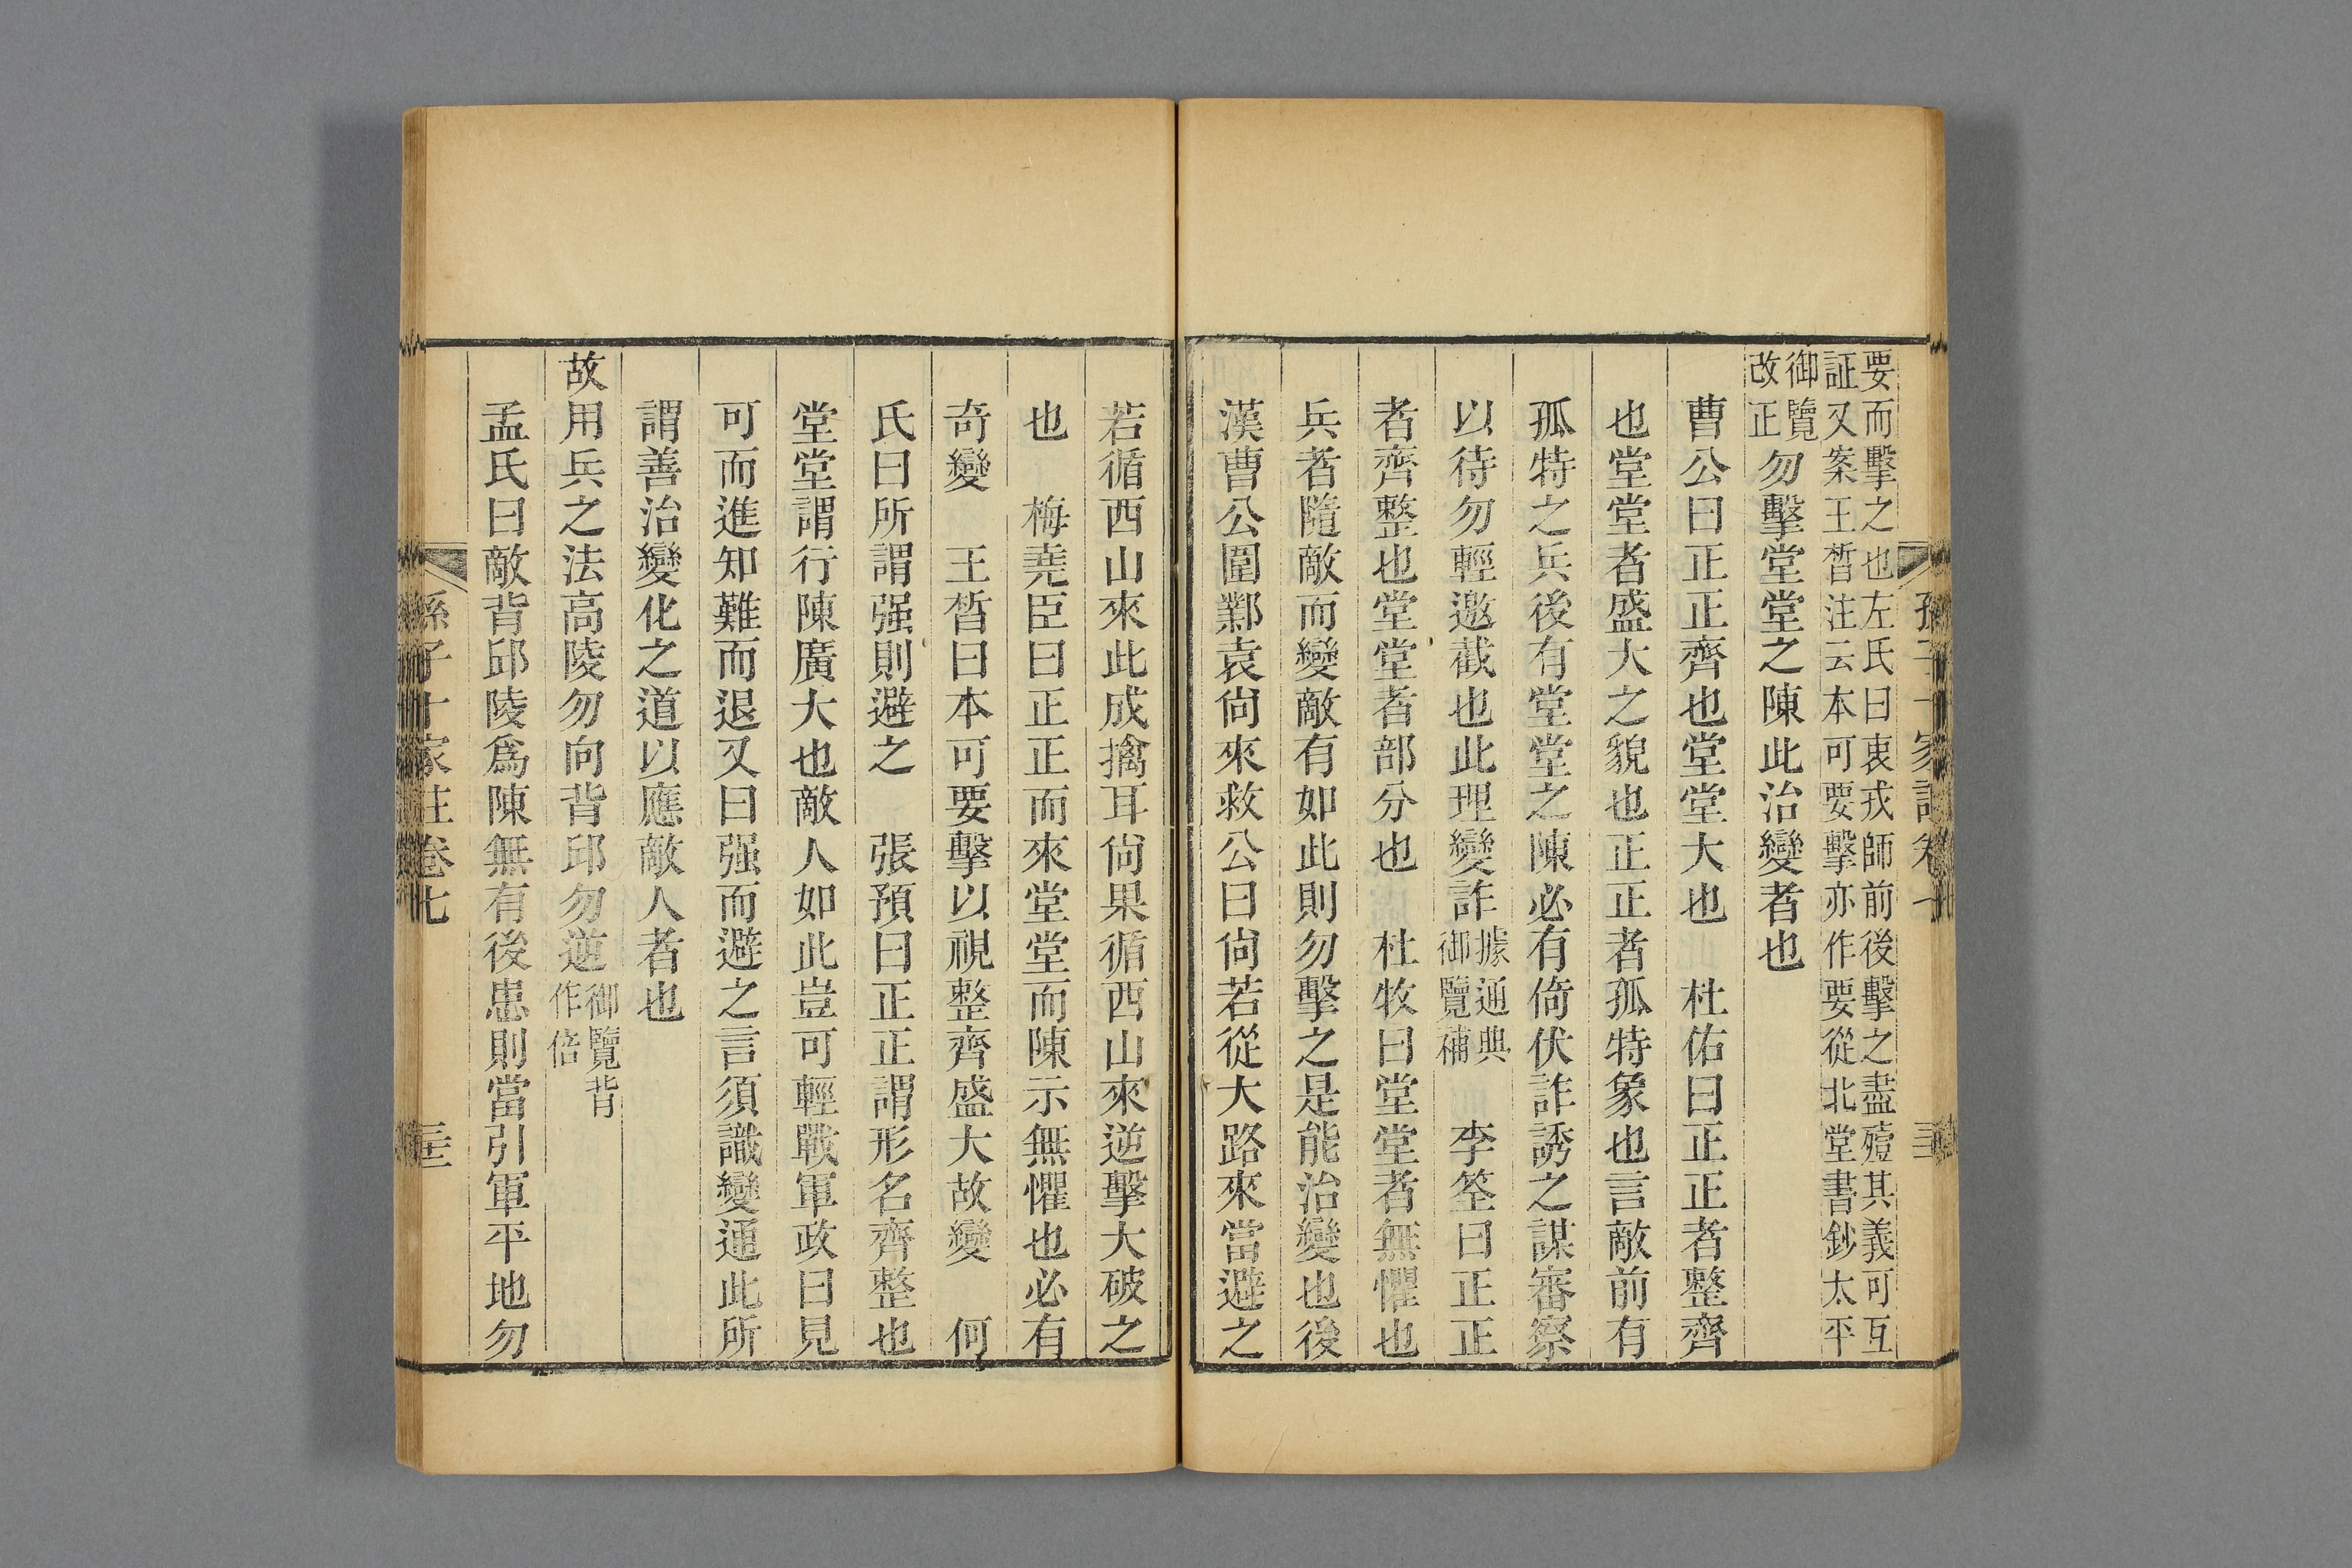 要而擊之也左氏曰衷戎師前後擊之盡殪其義可互
証又案王晳注云本可要擊亦作要從北堂書鈔太平
御覽
改正
勿擊堂堂之陳此治變者也
曹公曰正正齊也堂堂大也　杜佑曰正正者整齊
也堂堂者盛大之貌也正正者孤特象也言敵前有
孤特之兵後有堂堂之陳必有倚伏詐誘之謀審察
以待勿輕邀截也此理變詐
據通典
御覽補
李筌曰正正
者齊整也堂堂者部分也　杜牧曰堂堂者無懼也
兵者隨敵而變敵有如此則勿擊之是能治變也後
漢曹公圍鄴袁尙來救公曰尙若從大路來當避之
若循西山來此成擒耳尙果循西山來逆擊大破之
也　梅堯臣曰正正而來堂堂而陳示無懼也必有
奇變　王晳曰本可要擊以視整齊盛大故變　何
氏曰所謂强則避之　張預曰正正謂形名齊整也
堂堂謂行陳廣大也敵人如此豈可輕戰軍政曰見
可而進知難而退又曰强而避之言須識變通此所
謂善治變化之道以應敵人者也
故用兵之法高陵勿向背邱勿逆
御覽背
作倍
孟氏曰敵背邱陵爲陳無有後患則當引軍平地勿
孫子十家註卷七